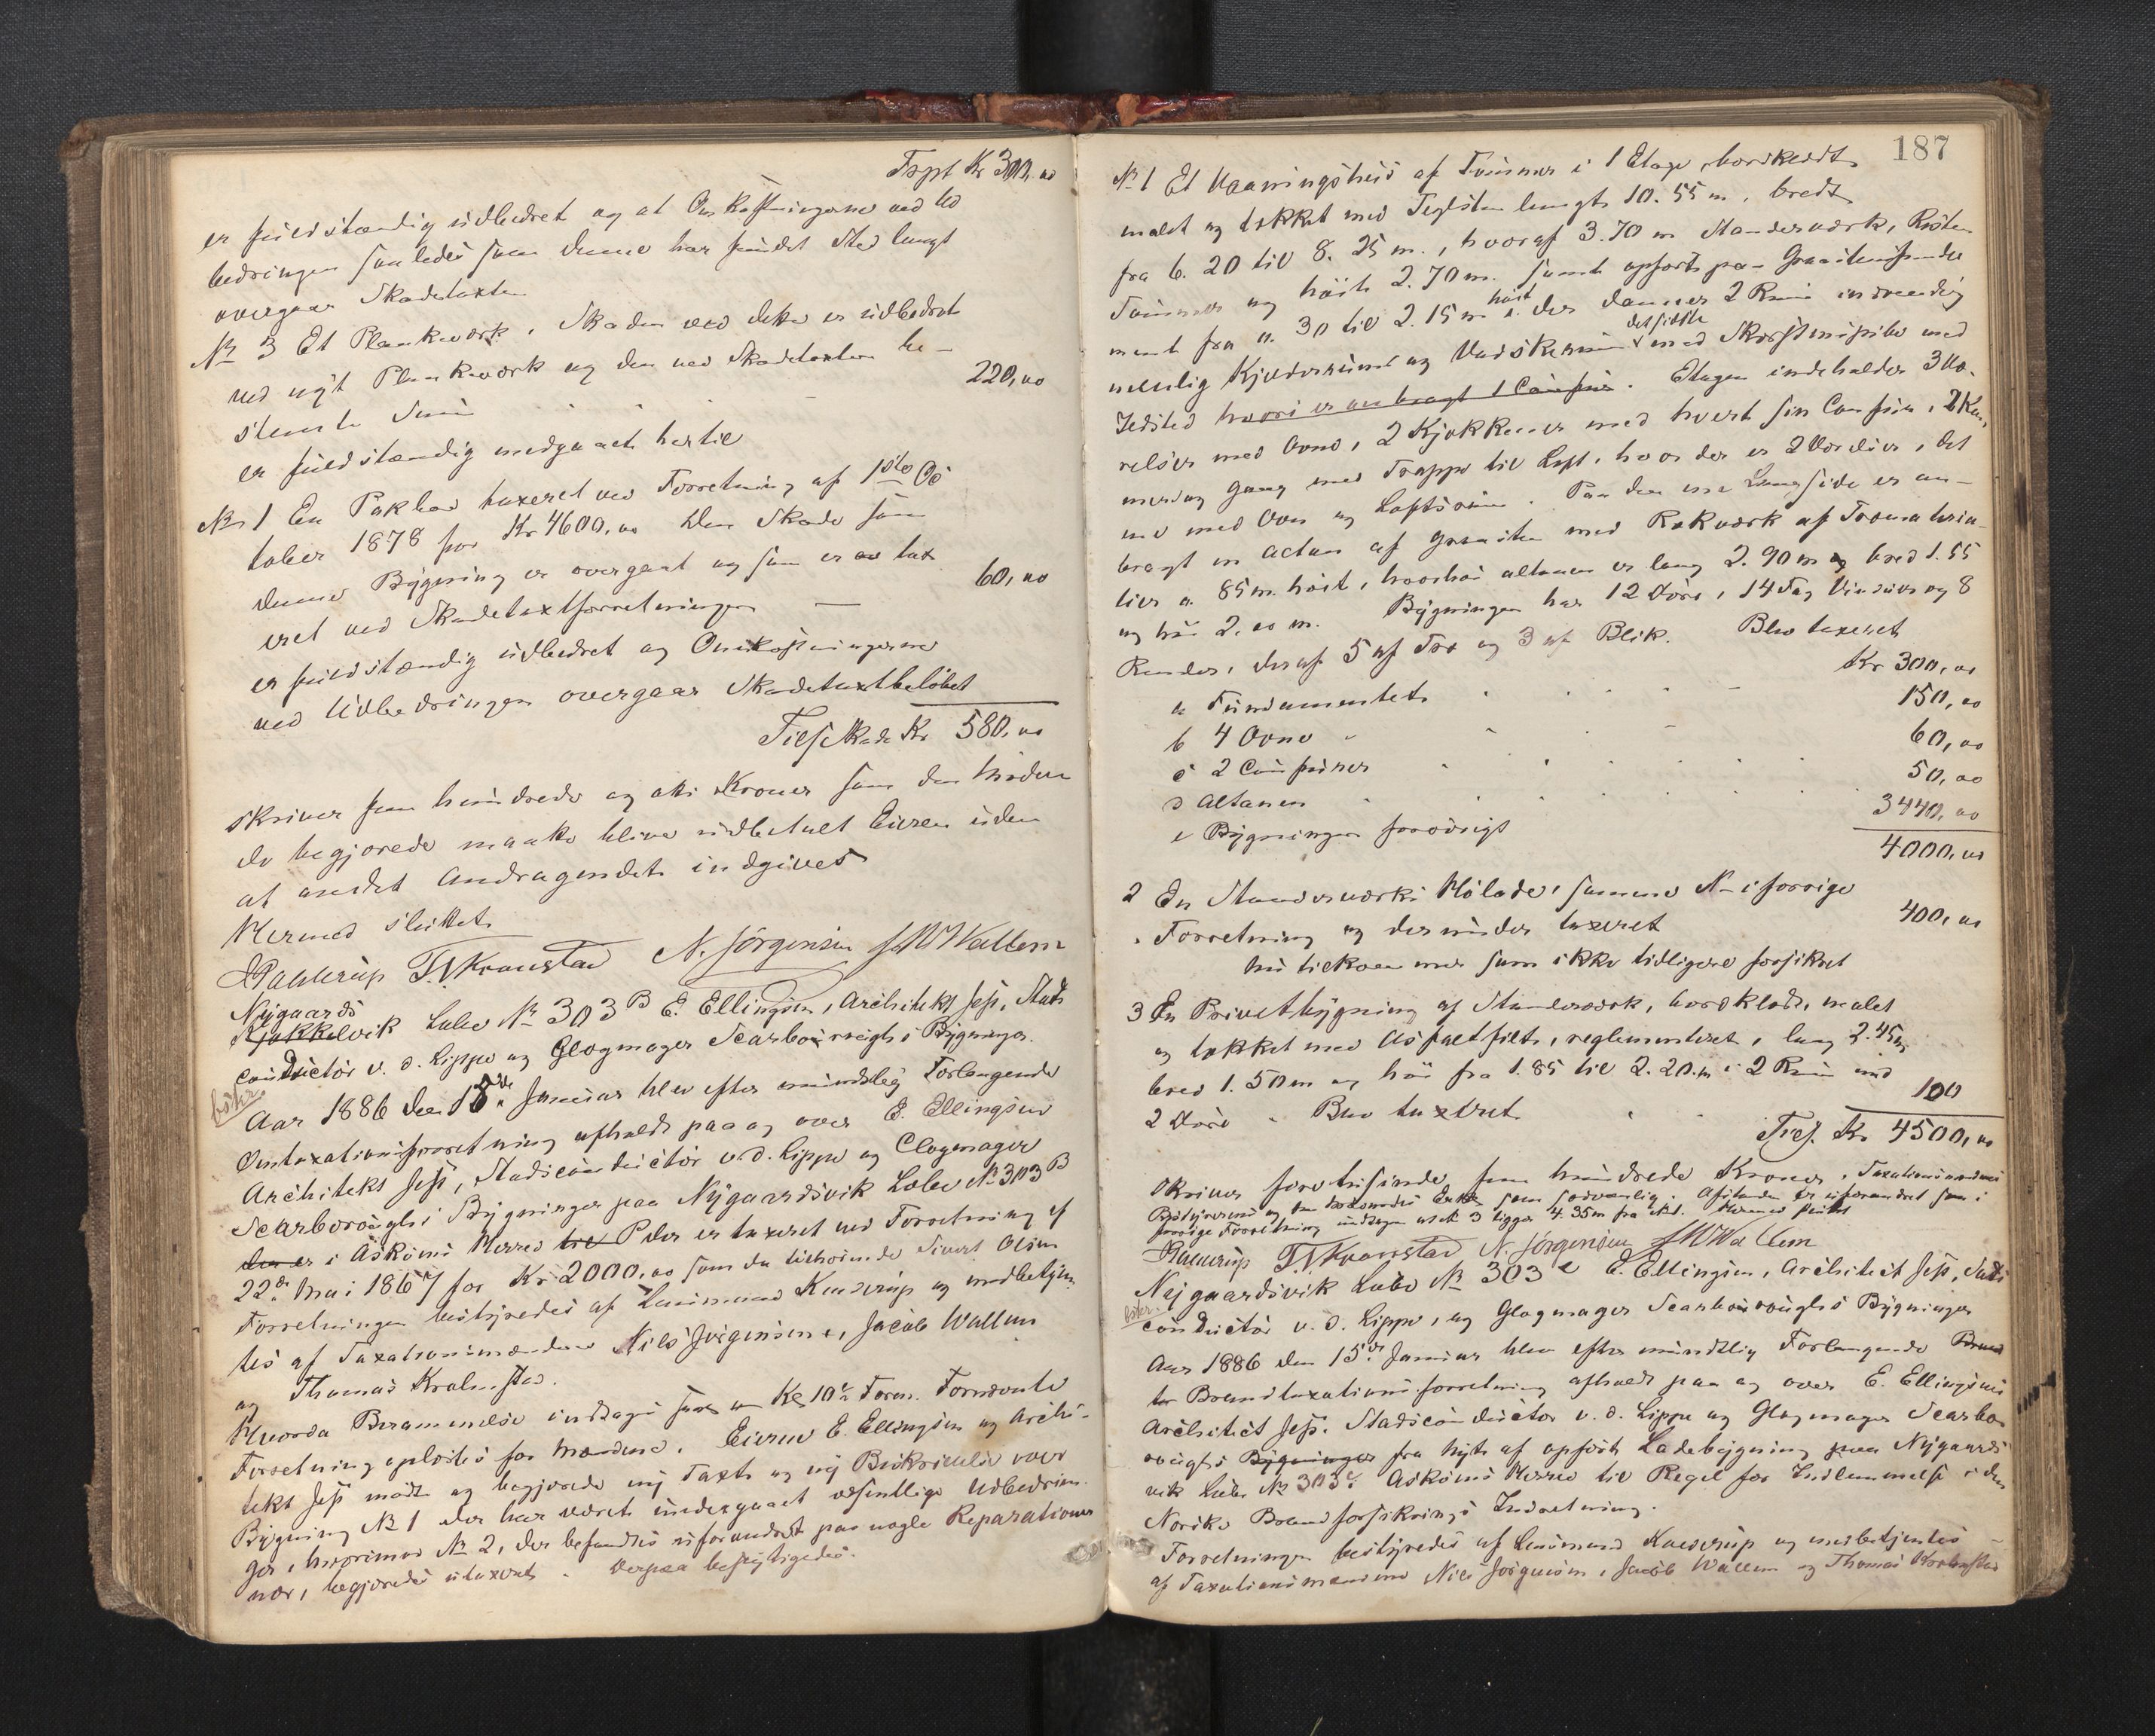 Trpt Kr 300.00
er fuldstændig udbedret og at Omkostningerne ved Ud
bedringen saaledes som denne har fundet Sted langt
overgaar Skadetaxten
No 3 Et Plankeværk. Skaden ved dette er udbedret
ved nyt Plankeværk og den ved Skadetaxten be-
stemte Sum 220,00
er fuldstændig medgaaet hertil
No 1 En Pakbod taxeret ved Forretning af 1ste Oc
tober 1878 for Kr 4600,00 Den Skade som
denne Bygning er overgaat og som er tax
eret ved Skadetaxtforretningen 60,00
er fuldstændig udbedret og Omkostningerne
ved Udbedringen overgaar Skadetaxtbeløbet
Tilsammen Kr 580,00
skriver fem hundrede og otti Kroner som
begjærede maatte blive udbetalt Eieren uden
at andet Andragendet indgives
Hermed sluttet
T. Kronstad N. Jørgensen J W Wallem
Nygaards
Kjøkkelvik Løbe No 303 B E. Ellingsen, Architekt Jess, Stads
conductør v. d. Lippe og Glogmager Scarboroughs Bygninger.
Aar 1886 den 15de Januar blev efter mundtlig Forlangende
Omtaxationsforretning afholdt paa og over E. Ellingsens
Architekt Jess, Stadsconductør v. d. Lippe og Clogmager
Scarboroughs Bygninger paa Nygaardsvik Løbe No 303 B
i Askøens Herred der er taxeret ved Forretning af
22de Mai 1867 for Kr 2000,00 som da tilhørende Sivert Olsen
Forretningen bestyredes af Lensmand og medbetjen
tes af Taxationsmændene Nils Jørgensen, Jacob Wallem
og Thomas
Hvorda Berammelse indtages Kl 10 Form. Fornævnte
Forretning oplæstes for Mændene. Eierne E. Ellingsen og Archi-
tekt Jess mødte og begjærede ny Taxt og ny Beskrivelse over
Bygning No 1 der har været undergaaet væsentlige Udbedrin-
ger, hvorimod No 2, der befandtes uforandret paa nogle Reparationer
nær, begjæredes utaxeret. Derpaa besigtigedes.
187
No 1 Et Vaaningshus af Tømmer i 1 Etage, bordklædt
malet og tækket med Teglsten langt 10.55 m, bredt
fra 6.20 til 8.25 m, hvoraf 3.70 m Standerværk, Resten
Tømmer og høit 2.70 m. samt opført paa Graastensfunda
ment fra 0.30 til 2.15 m høit, der danner 2 Rum indvendig
nemlig Kjælderrum og Vadskerum det sidste med Skorstenspibe med
Ildsted hvori er anbragt 1 Comfur. Etagen indeholder 3 Væ-
relser med Ovne, 2 Kjøkkener med hvert sin Comfur, 2 Kam
mer og Gang med Trappe til Loft, hvor der er 2 Værelser, det
ene med Ovn og Loftsrum. Paa den ene Langside er an-
bragt en Altan af Graasten med Rækværk af Træmateria-
lier 0.85 m høit, hvorhos altanen er lang 2.90 m og bred 1.55
og høi 2.00 m. Bygningen har 12 Døre, 14 Fag Vinduer og 8
Render, deraf 5 af Træ og 3 af Blik. Blev taxeret
a Fundamentet Kr 300,00
b 4 Ovne 150,00
c 2 Comfurer 60,00
d Altanen 50,00
e Bygningen forøvrigt 3440,00
4000,00
2 En Standerværks Hølade, samme No i forrige
Forretning og derunder taxeret 400,00
nu tilkommer som ikke tidligere forsikret
3 En Privetbygning af Standerværk, bordklædt, malet
og tækket med Asfaltfilt, reglementeret, lang 2.45 m
bred 1.50 m og høi fra 1.85 til 2.20 m i 2 Rum med
2 Døre. Blev taxeret 100
Tils. Kr 4500,00
skriver firetusinde fem hundrede Kroner. Taxationsmændenes
som sædvanlig. Afstanden er uforandret som i
forrige Forretning undtagen at No 3 ligger 4.35 m fra No 1. Hermed sluttet
T. Kronstad N. Jørgensen J W Wallem
Nygaardsvik Løbe No 303 c E. Ellingsen, Architect Jess, Stads
conductør v. d. Lippe, og Glogmager Scarboroughs Bygninger
Aar 1886 den 15de Januar blev efter mundtlig Forlangende
Brandtaxationsforretning afholdt paa og over E. Ellingsens
Architect Jess. Stadsconductør v. d. Lippe og Glogmager Scarbo
roughs Bygninger fra Nyt af opført Ladebygning paa Nygaards
vik Løbe No 303c Askøens Herred til Regel for Indlemmelse i den
Norske Brandforsikrings Indretning.
Forretningen bestyredes af Lensmand og medbetjentes
af Taxationsmændene Nils Jørgensen, Jacob Wallem og Thomas